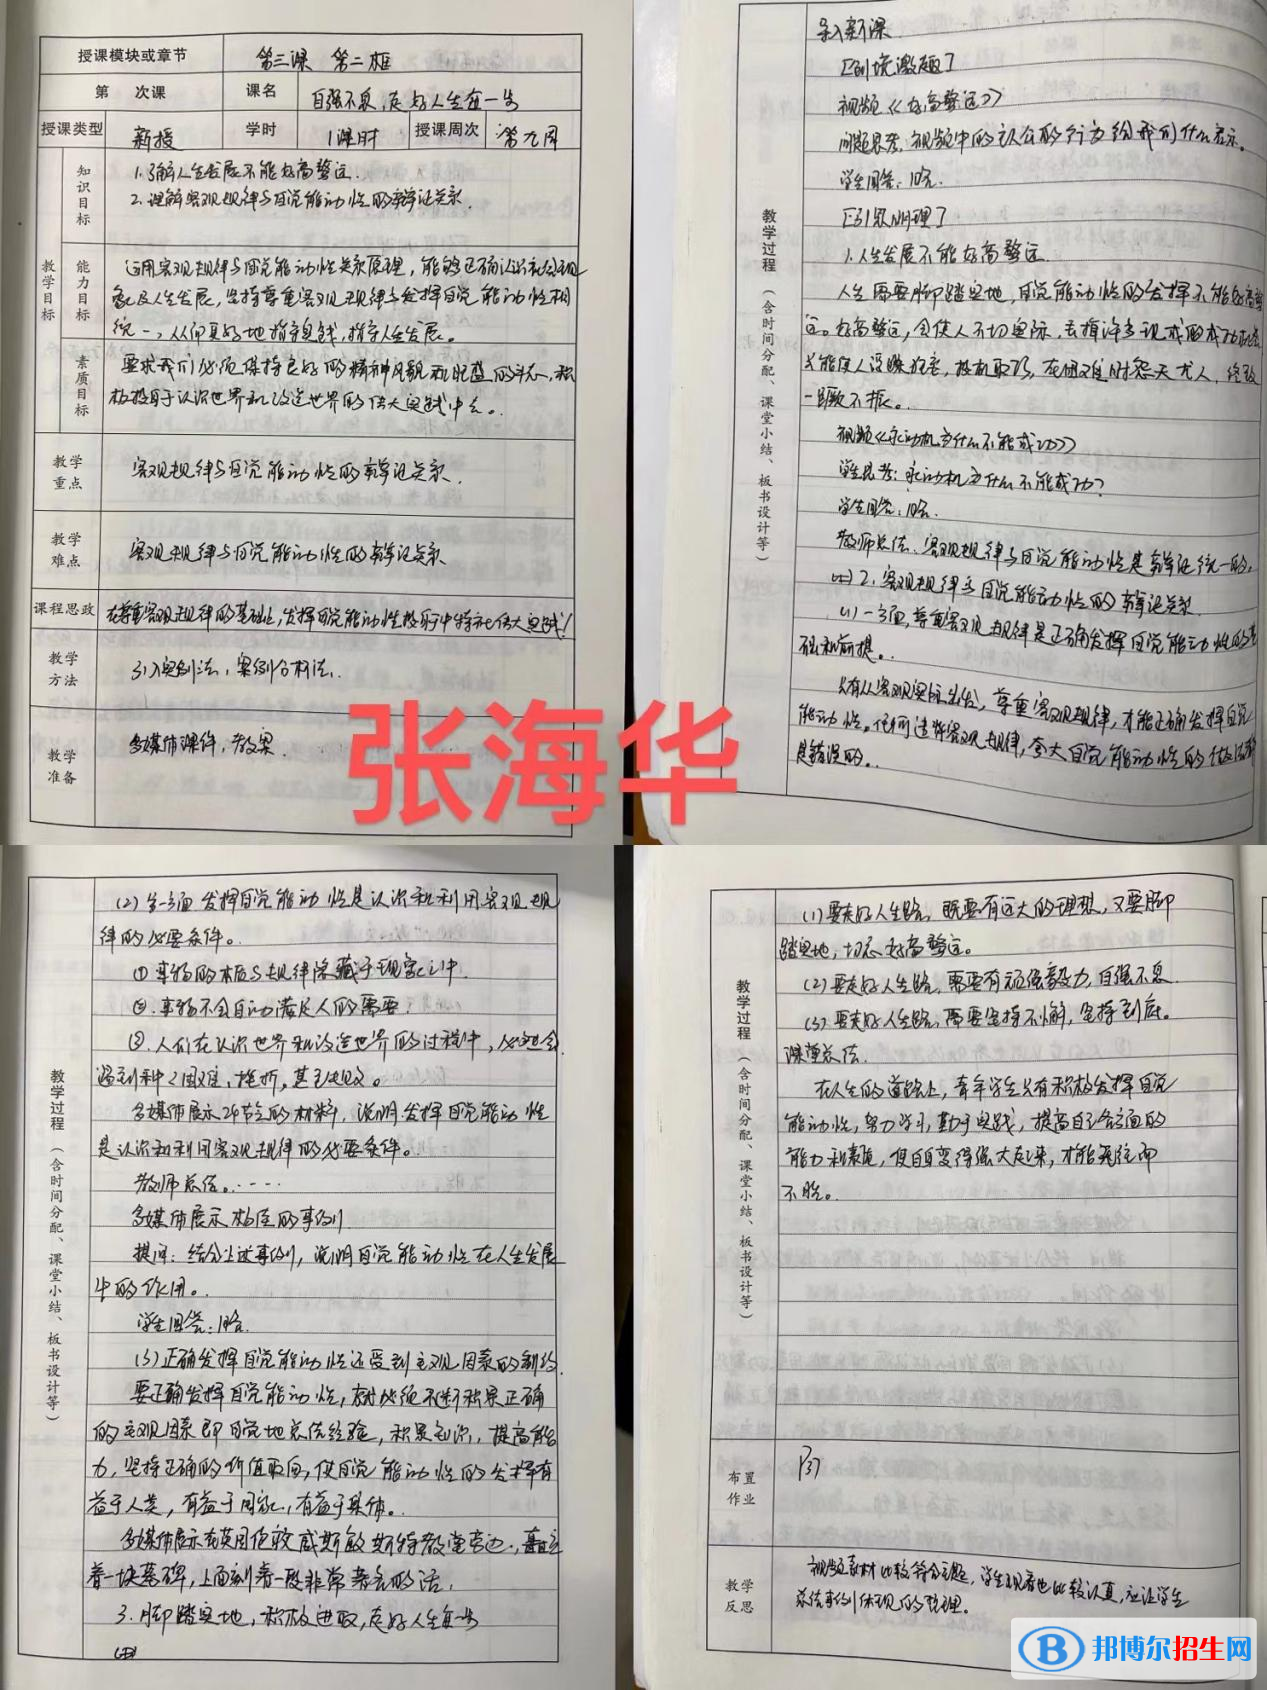 授课模块或章节 第三课 第二框
第 次课 课名 自强不息,走好人生每一步
授课类型 新授 学时 1课时 授课周次 第九周
教学目标
知识目标
1.了解人生发展不能好高骛远.
2.理解客观规律与自觉能动性的辩证关系.
能力目标
运用客观规律与自觉能动性关系原理,能够正确认识社会现
象及人生发展,坚持尊重客观规律与发挥自觉能动性相
统一,从而更好地指导实践,指导人生发展。
素质目标
要求我们必须保持良好的精神风貌和旺盛的斗志,积
极投身于认识世界和改造世界的伟大实践中去。
教学重点
客观规律与自觉能动性的辩证关系.
教学难点
客观规律与自觉能动性的辩证关系
课程思政 在尊重客观规律的基础上,发挥自觉能动性投身于中特社伟大实践!
教学方法
引入实例法,案例分析法.
教学准备
多媒体课件,教案.
张海华
教学过程(含时间分配、课堂小结、板书设计等)
导入新课
[创境激趣]
视频《好高骛远》
问题思考,视频中的主人公的行为给我们什么启示。
学生回答:略.
[引思明理]
1.人生发展不能好高骛远.
人生需要脚踏实地,自觉能动性的发挥不能好高骛
远。好高骛远,会使人不切实际,丢掉许多现成的成功机会
只能使人浮躁狂妄,投机取巧,在困难时怨天尤人,终致
一蹶不振。.
视频《永动机为什么不能成功》
学生思考:永动机为什么不能成功?
学生回答:略.
教师总结.客观规律与自觉能动性是辩证统一的。
2.客观规律与自觉能动性的辩证关系.
(1)一方面,尊重客观规律是正确发挥自觉能动性的基
础和前提。.
只有从客观实际出发,尊重客观规律,才能正确发挥自觉
能动性。任何违背客观规律,夸大自觉能动性的做法都
是错误的。.
教学过程(含时间分配、课堂小结、板书设计等)
(2)另一方面 发挥自觉能动性是认识和利用客观规
律的必要条件。.
①事物的本质与规律深藏于现象之中.
②.事物不会自动满足人的需要.
③.人们在认识世界和改造世界的过程中,必定会
遇到种种困难,挫折,甚至失败。
多媒体展示24节气的材料,说明发挥自觉能动性
是认识和利用客观规律的必要条件。.
教师总结.·····
多媒体展示 的事例
提问:结合上述事例,说明自觉能动性在人生发展
中的作用。.
学生回答:略.
(3)正确发挥自觉能动性还受到主观因素的制约.
要正确发挥自觉能动性,就必须不断积累正确
的主观因素即自觉地总结经验,积累知识,提高能
力,坚持正确的价值取向,使自觉能动性的发挥有
益于人类,有益于国家,有益于集体。.
多媒体展示在英国伦敦威斯敏斯特教堂旁边,矗立
着一块墓碑,上面刻着一段非常著名的话.
3.脚踏实地,积极进取,走好人生每一步
教学过程(含时间分配、课堂小结、板书设计等)
(1)要走好人生路,既要有远大的理想,又要脚
踏实地,切忌好高骛远。
(2)要走好人生路,需要有顽强毅力,自强不息.
(3)要走好人生路,需要坚持不懈,坚持到底。
课堂总结.
在人生的道路上,青年学生只有积极发挥自觉
能动性,努力学习,勤于实践,提高自己各方面的
能力和素质,使自身变得强大起来,才能无往而
不胜。.
布置作业
P37
教学反思
视频素材比较符合主题,学生观看也比较认真,应让学生
总结事例体现的哲理。
邦博尔招生网